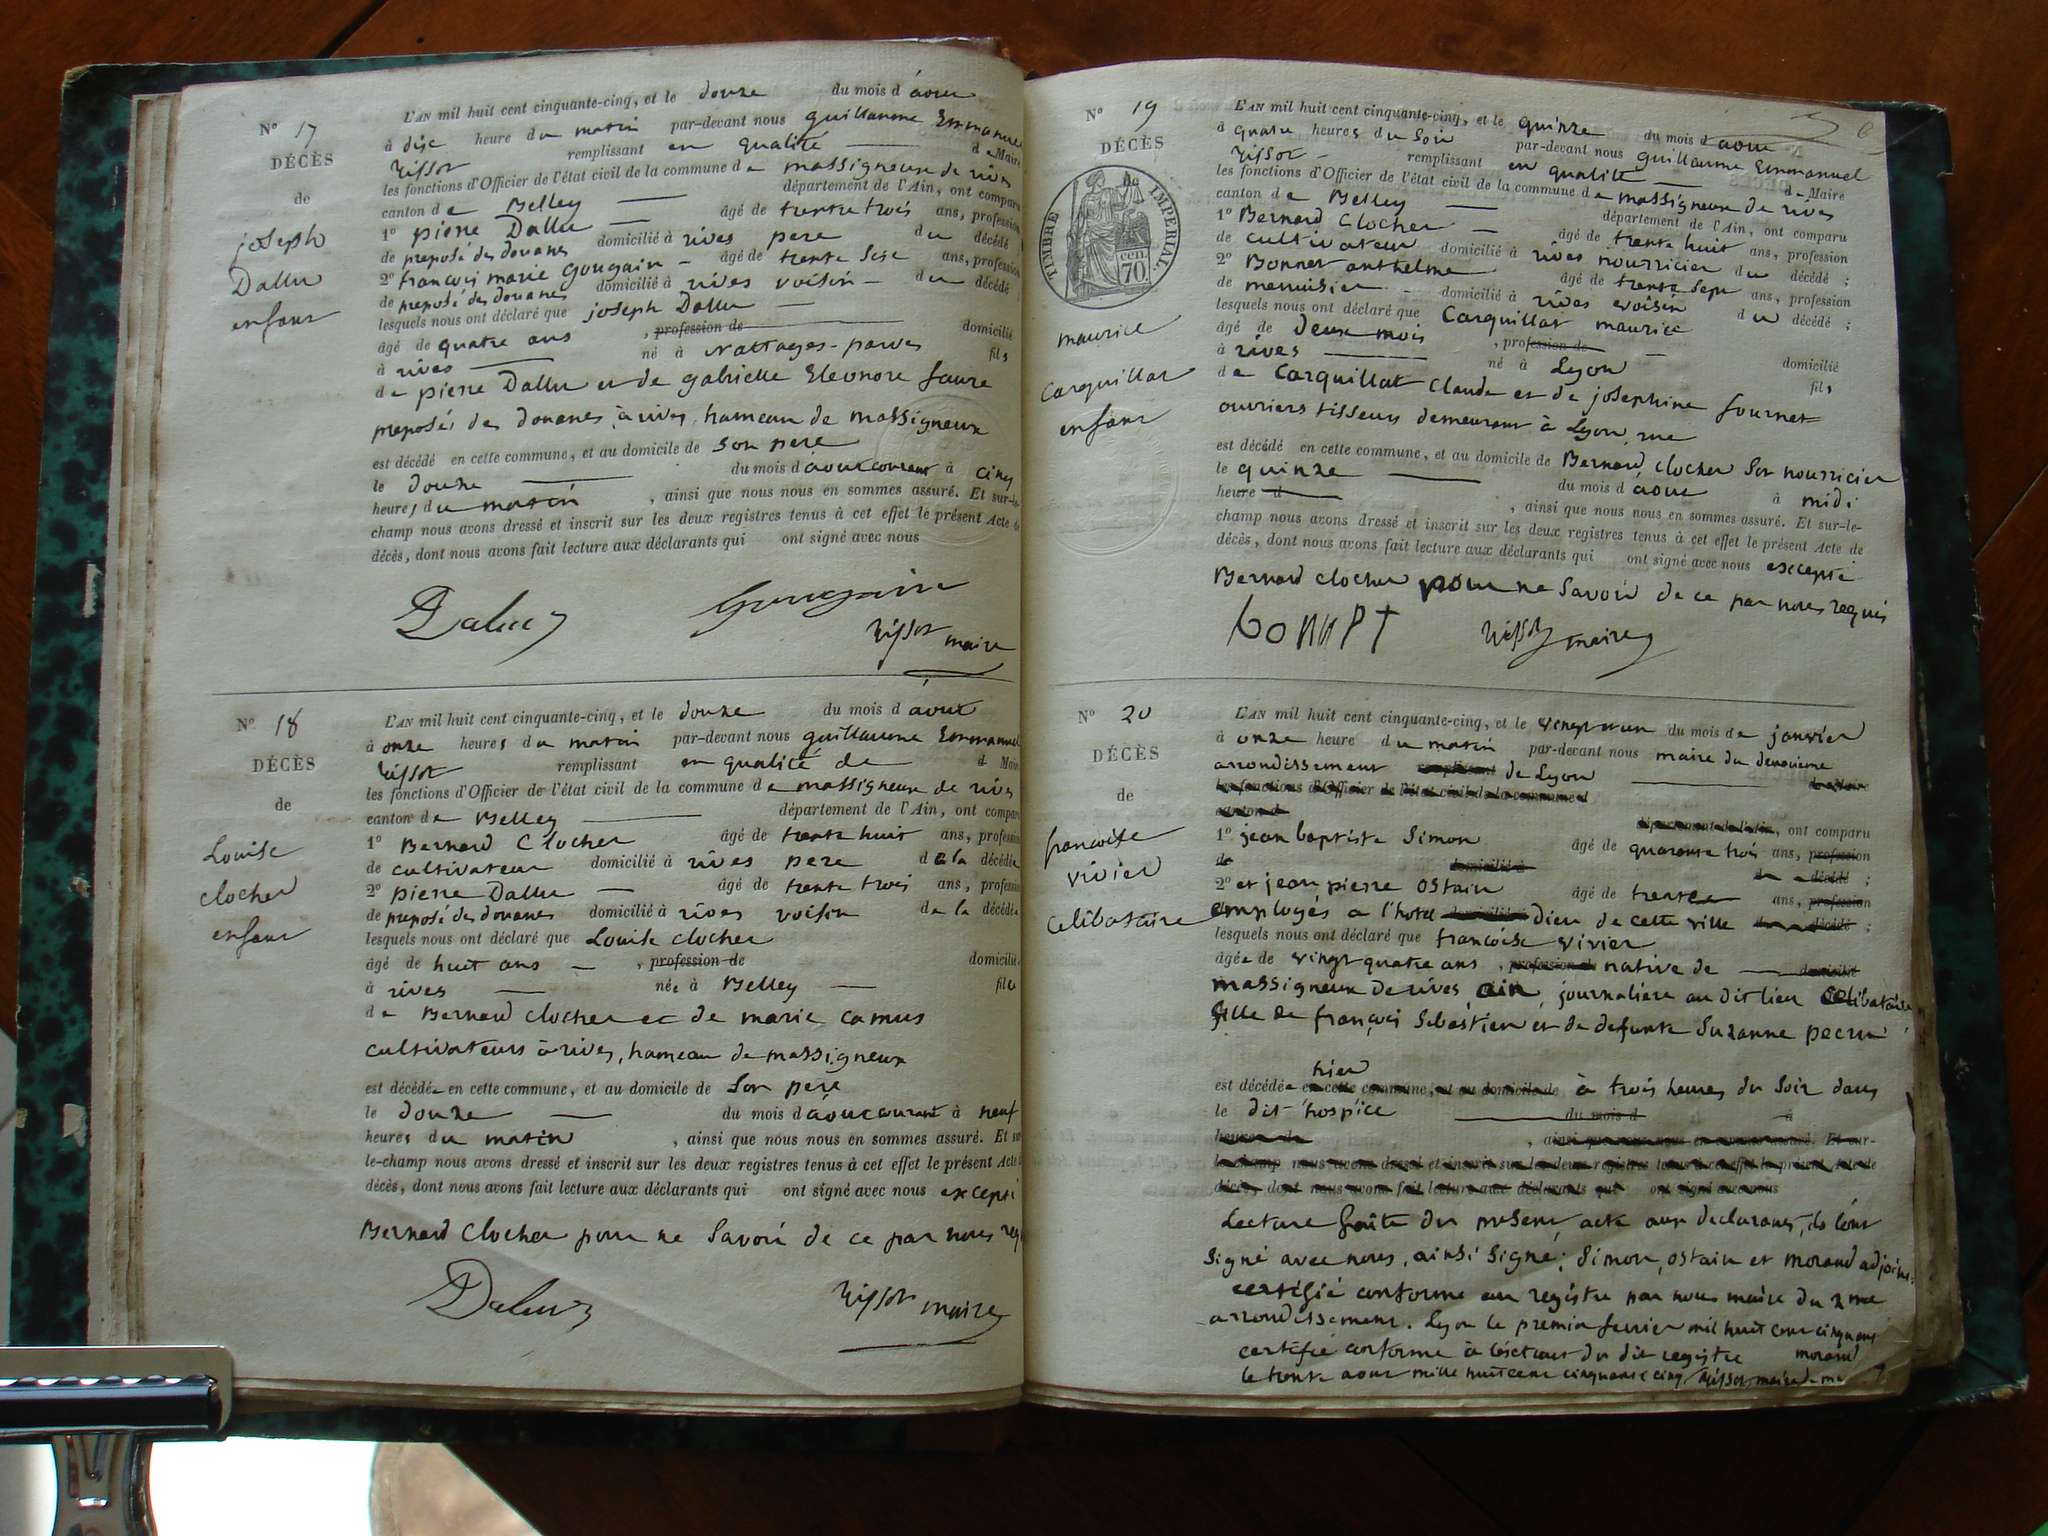 N° 17
DÉCÈS
de
joseph
Dallu
enfant
L'AN mil huit cent cinquante-cinq, et le douze du mois d'août
à dix heure du matin par-devant nous guillaume Emmanuel
Tissot remplissant en qualité de Maire
les fonctions d'Officier de l'état civil de la commune de massigneux de rives
canton de Belley département de l'Ain, ont comparu
1° pierre Dallu âgé de trente trois ans, profession
de preposé des douanes domicilié à rives pere du décédé
2° françois marie Gougain âgé de trente six ans, profession
de preposé des douanes domicilié à rives voisin du décédé
lesquels nous ont déclaré que joseph Dallu
âgé de quatre ans, profession de domicilié
à rives né à Nattages-parves fils
de pierre Dallu et de gabrielle Eleonore faure
preposés des douanes, à rives, hameau de massigneux
est décédé en cette commune, et au domicile de son pere
le douze du mois d'août courant à cinq
heures du matin, ainsi que nous nous en sommes assuré. Et sur-le-
champ nous avons dressé et inscrit sur les deux registres tenus à cet effet le présent Acte de
décès, dont nous avons fait lecture aux déclarants qui ont signé avec nous
Dalu Gougain
Tissot maire
N° 18
DÉCÈS
de
Louise
clocher
enfant
L'AN mil huit cent cinquante-cinq, et le douze du mois d'août
à onze heures du matin par-devant nous guillaume Emmanuel
Tissot remplissant en qualité de d Maire
les fonctions d'Officier de l'état civil de la commune de massigneux de rives
canton de Belley département de l'Ain, ont comparu
1° Bernard Clocher âgé de trente huit ans, profession
de cultivateur domicilié à rives pere de la décédée
2° pierre Dallu âgé de trente trois ans, profession
de preposé des douanes domicilié à rives voisin de la décédée
lesquels nous ont déclaré que Louise clocher
âgé de huit ans, profession de domicilié
à rives née à Belley fille
de Bernard clocher et de marie camus
cultivateurs à rives, hameau de massigneux
est décédée en cette commune, et au domicile de son pere
le douze du mois d'août courant à neuf
heures du matin, ainsi que nous nous en sommes assuré. Et sur-
le-champ nous avons dressé et inscrit sur les deux registres tenus à cet effet le présent Acte de
décès, dont nous avons fait lecture aux déclarants qui ont signé avec nous excepté
Bernard Clocher pour ne savoir de ce par nous req
Dalu Tissot maire
N° 19
DÉCÈS
TIMBRE IMPERIAL
70 cen
maurice
carquillat
enfant
L'AN mil huit cent cinquante-cinq, et le quinze du mois d'aout
à quatre heures du soir par-devant nous guillaume Emmanuel
Tissot remplissant en qualité de Maire
les fonctions d'Officier de l'état civil de la commune de massigneux de rives
canton de Belley département de l'Ain, ont comparu
1° Bernard Clocher âgé de trente huit ans, profession
de cultivateur domicilié à rives nourricier du décédé ;
2° Bonnet anthelme âgé de trente sept ans, profession
de menuisier domicilié à rives voisin du décédé ;
lesquels nous ont déclaré que Carquillat maurice
âgé de deux mois, profession de domicilié
à rives né à Lyon fils
de Carquillat Claude et de josephine fournet
ouvriers tisseurs demeurant à Lyon, rue
est décédé en cette commune, et au domicile de Bernard clocher son nourricier
le quinze du mois d'aout à midi
heure d, ainsi que nous nous en sommes assuré. Et sur-le-
champ nous avons dressé et inscrit sur les deux registres tenus à cet effet le présent Acte de
décès, dont nous avons fait lecture aux déclarants qui ont signé avec nous excepté
Bernard clocher pour ne savoir de ce par nous requis
bonnet Tissot maire
N° 20
DÉCÈS
de
francoise
vivier
celibataire
L'AN mil huit cent cinquante-cinq, et le vingt un du mois de janvier
à onze heure du matin par-devant nous maire du deuxieme
arrondissement remplissant de Lyon de Maire
les fonctions d'Officier de l'état civil de la commune d
canton d département de l'Ain, ont comparu
1° jean baptiste Simon âgé de quarante trois ans, profession
de domicilié à du décédé ;
2° et jean pierre Ostain âgé de trente ans, profession
employés a l'hotel domicilié à dieu de cette ville du décédé ;
lesquels nous ont déclaré que francoise vivier
âgée de vingt quatre ans, profession de native de domicilié
massigneux de rives, ain, journaliere au dit lieu celibataire
fille de françois Sebastien et de defunte Suzanne pecru
hier
est décédée en cette commune, et au domicile de à trois heures du soir dans
le dit hospice du mois d à
heures du, ainsi que nous nous en sommes assuré. Et sur-
le-champ nous avons dressé et inscrit sur les deux registres tenus à cet effet le présent Acte de
décès, dont nous avons fait lecture aux déclarants qui ont signé avec nous
Lecture faite du present acte aux declarants, ils l'ont
signé avec nous, ainsi signé ; Simon, Ostain et morand adjoint.
certifié conforme au registre par nous maire du 2me
arrondissement. Lyon le premier fevrier mil huit cent cinquante
certifié conforme à l'extrait du dit registre morand
le trente aout mille huit cent cinquante cinq Tissot maire